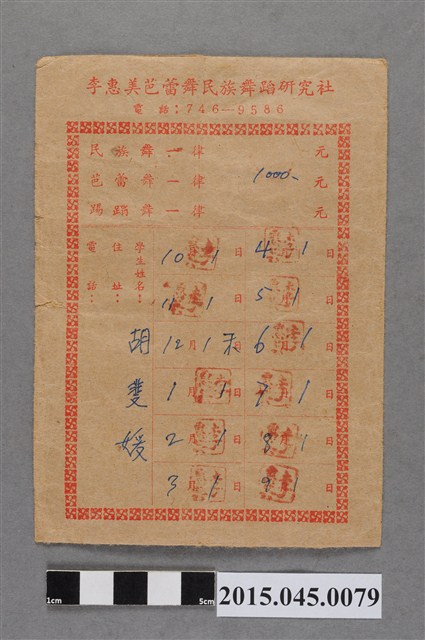 李惠美芭蕾舞民族舞蹈研究社
電話：746—9586
民族舞：一律 元
芭蕾舞：一律 1000- 元
踢踏舞：一律 元
學生姓名：胡雙媛
住址：
電話：
10 1日 4 1日
11 1日 5 1日
12月1日 6 1日
1月1日 7 1日
2月1日 8 1日
3 1日 9 1日
1cm 5cm
2015.045.0079